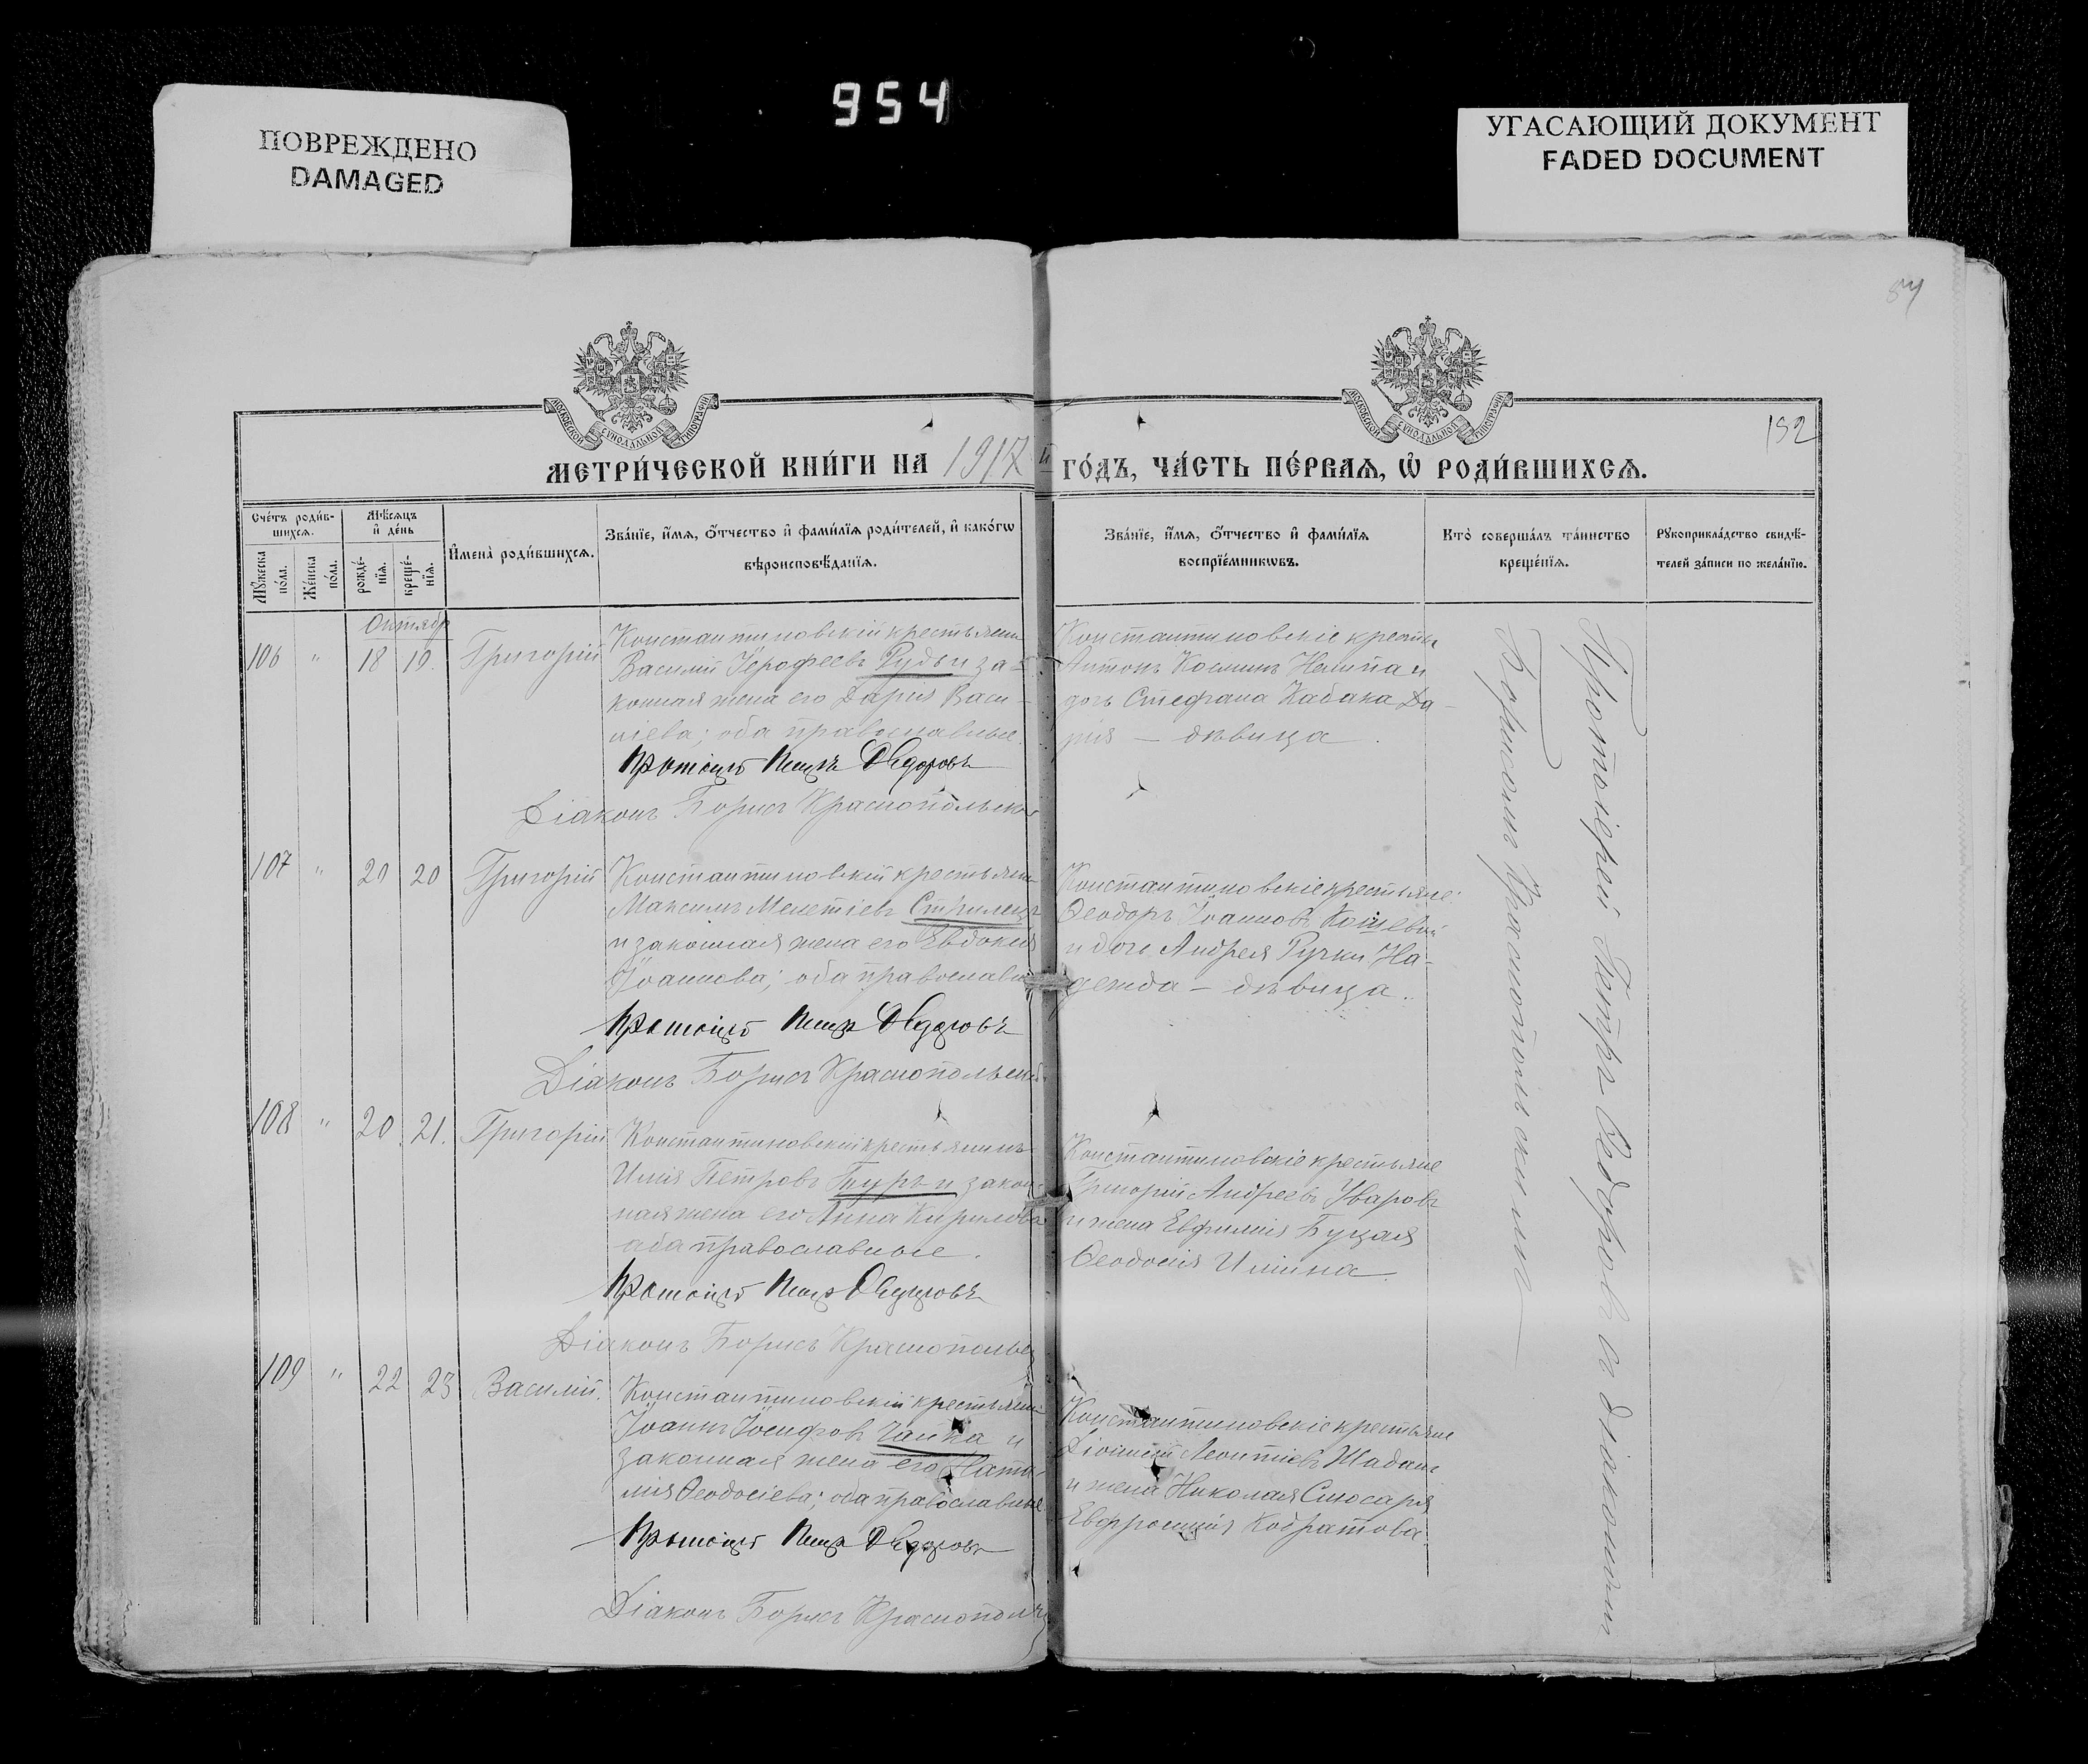 954
ПОВРЕЖДЕНО
DAMAGED
УГАСАЮЩИЙ ДОКУМЕНТ
FADED DOCUMENT
84
МОСКОВСКОЙ СѴНОДАЛЬНОЙ ТИПОГРАФІИ
МОСКОВСКОЙ СѴНОДАЛЬНОЙ ТИПОГРАФІИ
152
МЕТРИ́ЧЕСКОЙ КНИ́ГИ НА 1917 й ГО́ДЪ, ЧА́СТЬ ПЕ́РВАѦ, Ѡ҆ РОДИ́ВШИХСѦ.
Сче́тъ роди́в-
шихсѧ.
Мꙋ́жеска по́ла.
Же́нска по́ла.
Мѣ́сѧцъ и҆ де́нь
рожде́-
нїѧ.
креще́-
нїѧ.
И҆мена̀ роди́вшихсѧ.
Зва́нїе, и҆́мѧ, ѻ҆́тчество и҆ фами́лїѧ роди́телей, и҆ како́гѡ
вѣроисповѣ́данїѧ.
Зва́нїе, и҆́мѧ, ѻ҆́тчество и҆ фами́лїѧ
воспрїе́мникѡвъ.
Кто̀ соверша́лъ та́инство
креще́нїѧ.
Рꙋкоприкла́дство свидѣ́-
телей за́писи по жела́нїю.
Октябр
106 " 18 19. Григорій
Константиновскій крестьянин
Василій Іерофеевъ Рудь и за-
конная жена его Дарія Васи-
ліева; оба православные.
Протоіер Петръ Ѳедоровъ
Діаконъ Борисъ Краснопольск
Константиновскіе крестьян
Антонъ Космин и
дочь Стефана Кабака Да-
рія — дѣвица.
107 " 20 20 Григорій
Константиновскій крестьянин
Максимъ Мелетіевъ Стрилецъ
и законная жена его Евдокія
Іоаннова; оба православн
Протоіер Петръ Ѳедоровъ
Діаконъ Борисъ Краснопольскій
Константиновскіе крестьяне:
Ѳеодоръ Іоанновъ Кошевой
и дочь Андрея Ручки На-
дежда — дѣвица.
108 " 20 21. Григорій
Константиновскій крестьянинъ
Илія Петровъ Буръ и закон-
ная жена его Анна Кирилова
оба православные.
Протоіер Петръ Ѳедоровъ
Діаконъ Борисъ Краснопольск
Константиновскіе крестьяне
Григорій Андреевъ Уваровъ
и жена Евфимія Буцая
Ѳеодосія Ильина
109 " 22 23 Василій.
Константиновскій крестьянин
Іоаннъ Іосифовъ Чайка и
законная жена его Ната-
лія Ѳеодосіева; оба православные
Протоіер Петръ Ѳедоровъ
Діаконъ Борисъ Краснополь
Константиновскіе крестьяне
Діонисій Леонтіевъ Шаданъ
и жена Николая Слюсаря
Евфросинія Кодратова.
Протоіерей Петръ Ѳедоровъ и діакономъ
Борисомъ Краснопольскимъ